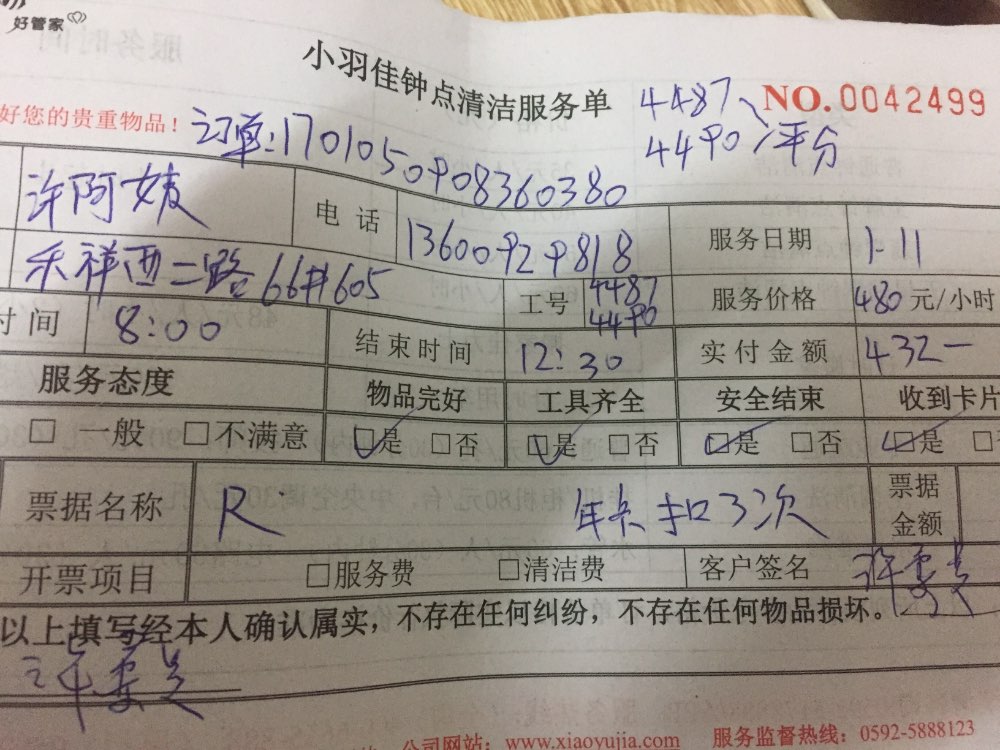 好管家
小羽佳钟点清洁服务单
4487、
4490 平分
NO.0042499
好您的贵重物品！
订单:1701050908360380
许阿姨
电话
13600929818
服务日期
1-11
禾祥西二路66#605
工号
4487
4490
服务价格
480元/小时
时间
8:00
结束时间
12:30
实付金额
432一
服务态度
物品完好
工具齐全
安全结束
收到卡片
□ 一般 □不满意
□是 □否
□是 □否
□是 □否
□是
票据名称
R
年卡扣3次
票据
金额
开票项目
□服务费
□清洁费
客户签名
以上填写经本人确认属实，不存在任何纠纷，不存在任何物品损坏。
公司网站：www.xiaoyujia.com
服务监督热线：0592-5888123